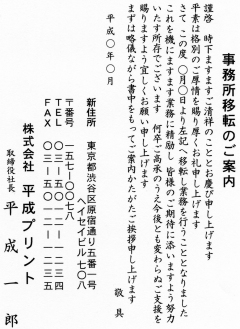 事務所移転のご案内
謹啓　時下ますますご清祥のこととお慶び申し上げます
平素は格別のご厚情を賜り厚くお礼申し上げます
さて　この度　〇月〇日より左記へ移転し業務を行うこととなりました
これを機にますます業務に精励し　皆様のご期待に添いますよう努力
いたす所存でございます　何卒ご高承のうえ今後とも変わらぬご支援を
賜りますよう宜しくお願い申し上げます
まずは略儀ながら書中をもってご案内かたがたご挨拶申し上げます
敬具
平成〇年〇月
新住所
東京都渋谷区原宿通り五番一号
ヘイセイビル一〇八
〒番号　一五七-〇〇七八
TEL　〇三-五〇一二-一二三四
FAX　〇三-五〇一二-一二三五
株式会社　平成プリント
取締役社長　平成一郎